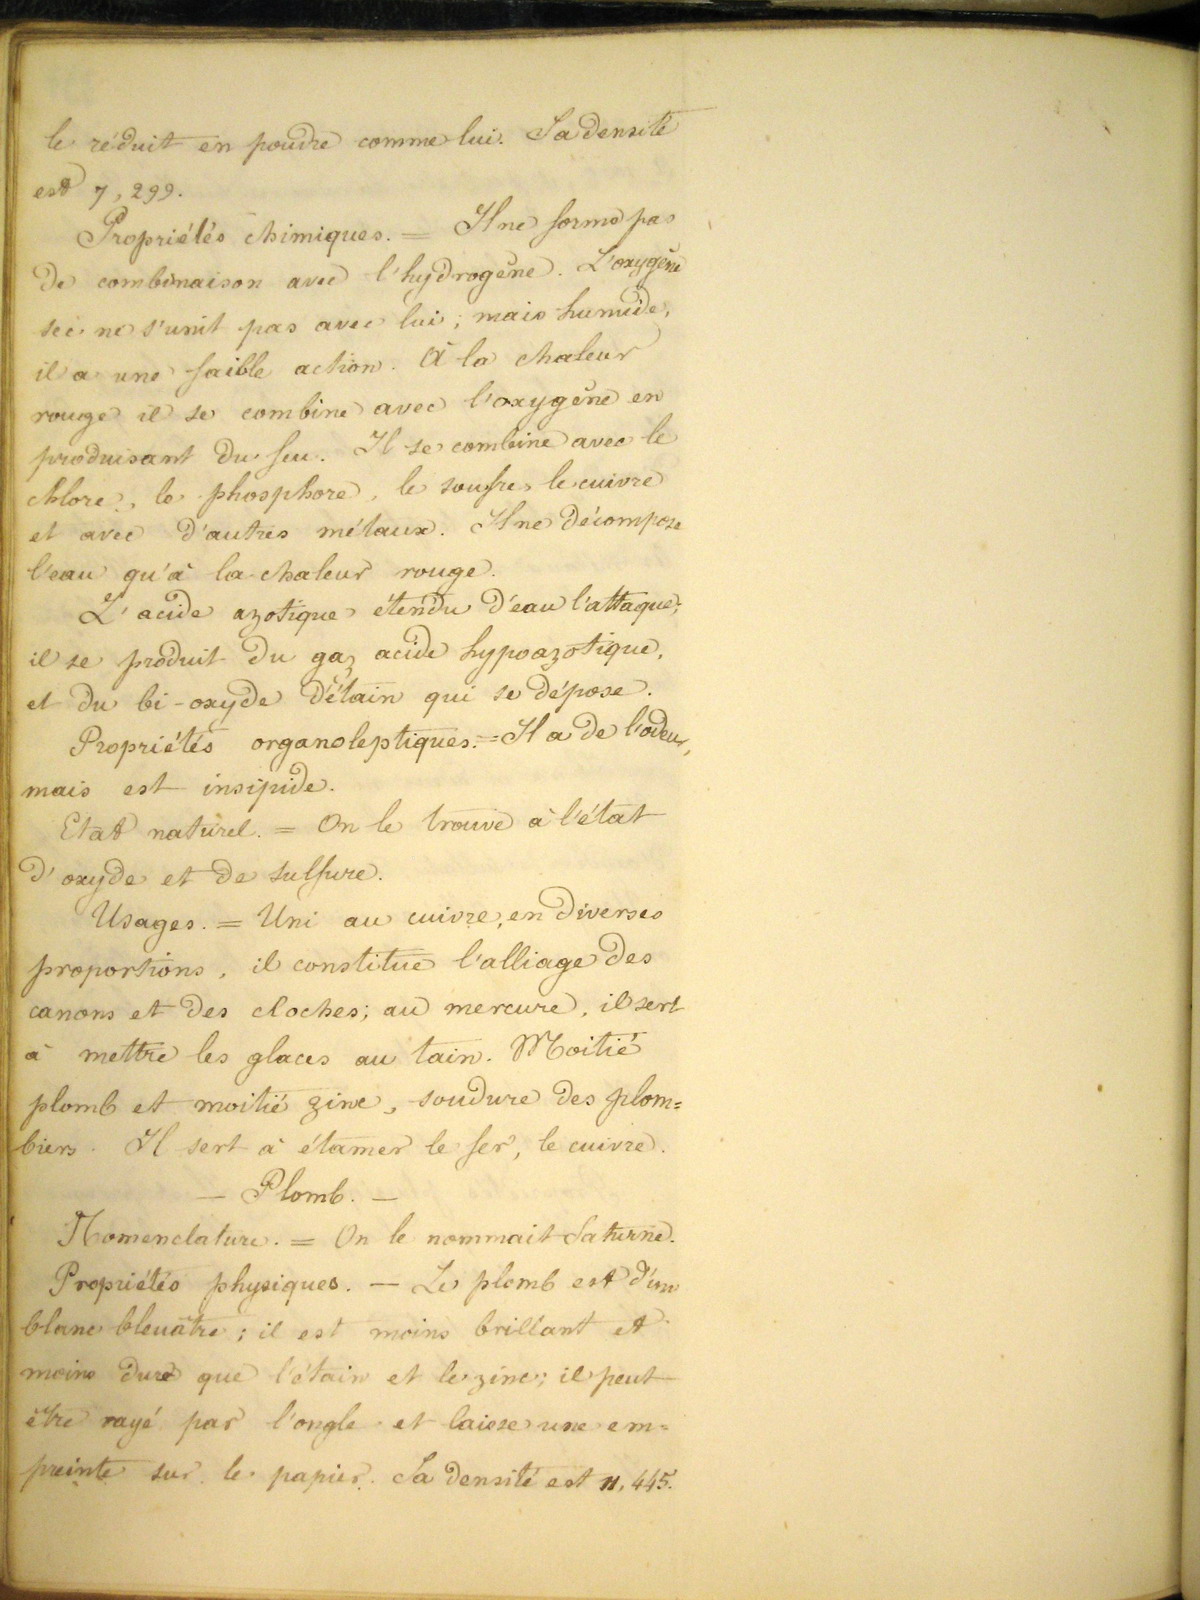 le réduit en poudre comme lui. Sa densité
est 7,299.
Propriétés chimiques. = Il ne forme pas
de combinaison avec l'hydrogène. L'oxygène
sec ne s'unit pas avec lui; mais humide,
il a une faible action. A la chaleur
rouge il se combine avec l'oxygène en
produisant du feu. Il se combine avec le
chlore, le phosphore, le soufre, le cuivre
et avec d'autres métaux. Il ne décompose
l'eau qu'à la chaleur rouge.
L'acide azotique étendu d'eau l'attaque;
il se produit du gaz acide hypoazotique,
et du bi-oxyde d'étain qui se dépose.
Propriétés organoleptiques. = Il a de l'odeur,
mais est insipide.
Etat naturel. = On le trouve à l'état
d'oxyde et de sulfure.
Usages. = Uni au cuivre, en diverses
proportions, il constitue l'alliage des
canons et des cloches; au mercure, il sert
à mettre les glaces au tain. Moitié
plomb et moitié zinc, soudure des plom=
biers. Il sert à étamer le fer, le cuivre.
— Plomb. —
Nomenclature. = On le nommait Saturne.
Propriétés physiques. — Le plomb est d'un
blanc bleuâtre; il est moins brillant et
moins dure que l'étain et le zinc; il peut
être rayé par l'ongle et laisse une em=
preinte sur le papier. Sa densité est 11,445.